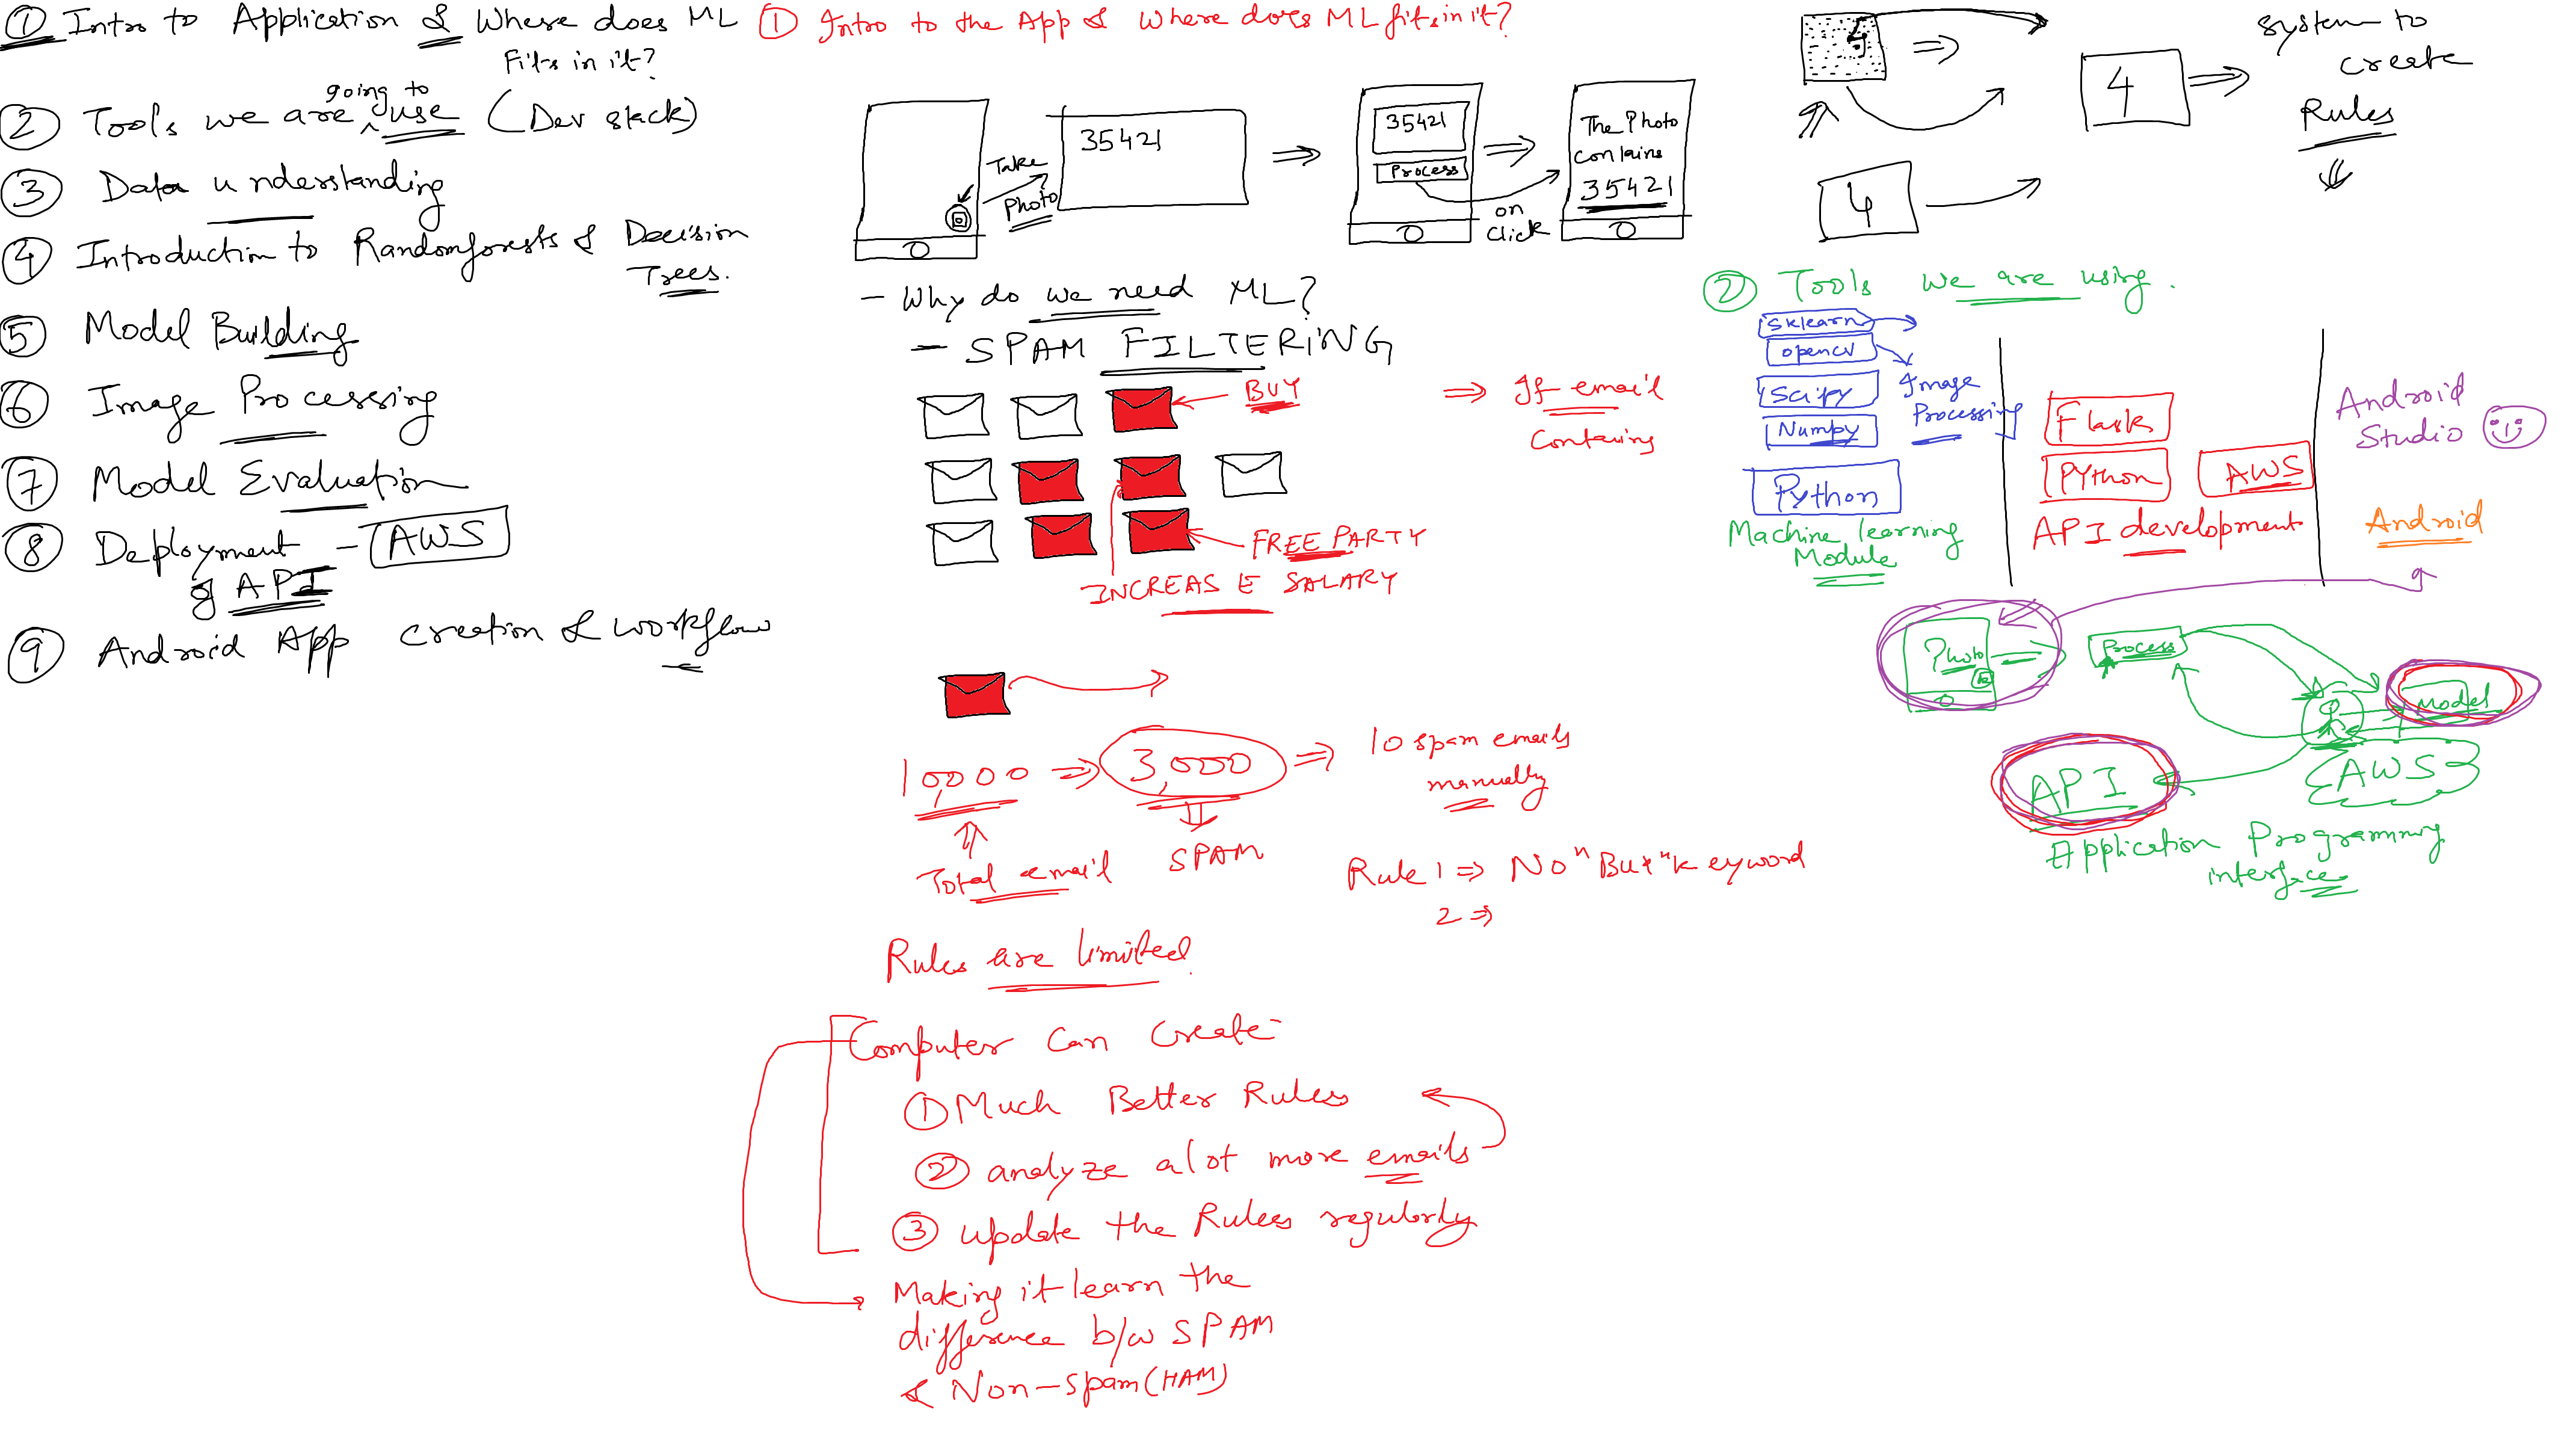 ① Intro to Application & Where does ML
Fits in it?
② Tools we are going to use (Dev stack)
③ Data understanding
④ Introduction to Randomforests & Decision
Trees.
⑤ Model Building
⑥ Image Processing
⑦ Model Evaluation
⑧ Deployment - AWS
of API
⑨ Android App creation & workflow
① Intro to the App & Where does ML fits in it?
Take
Photo
35421
35421
Process
on
click
The Photo
contains
35421
- Why do we need ML?
- SPAM FILTERING
BUY
FREE PARTY
INCREASE SALARY
⇒ If email
Containing
10,000 ⇒ 3,000 ⇒ 10 spam emails
manually
Total email
SPAM
Rule 1 ⇒ No "Buy" Keyword
2 ⇒
Rules are limited
Computer Can Create
① Much Better Rules
② analyze alot more emails
③ update the Rules regularly
Making it learn the
difference b/w SPAM
& Non-spam (HAM)
4
4
system to
create
Rules
4
② Tools we are using.
sklearn
opencv
Scipy
Numpy
Python
Image
Processing
Machine learning
Module
Flask
Python
AWS
API development
Android
Studio
Android
Photo
Process
Model
AWS
API
Application Programming
interface